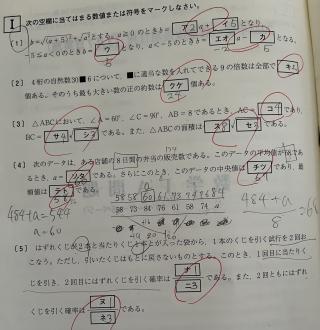 I 次の空欄に当てはまる数値または符号をマークしなさい。
〔1〕 b=√(a+5)²+√a²とする。a≧0のときb= ア2 a+ イ5 となり,
-5≦a<0のときb= ウ となり, a<-5のときb= エオ a- カ となる。
5 -2 5
〔2〕 4桁の自然数30■6について, ■に適当な数を入れてできる9の倍数は全部で キ2
個である。そのうち最も大きい数の正の約数は クケ 個である。
24
〔3〕 △ABCにおいて, ∠A=60°, ∠C=90°, AB=8であるとき, AC= コ4 であり,
BC= サ4 √ シ3 である。また, △ABCの面積は ス8 √ セ3 である。
〔4〕 次のデータは, ある店舗の8日間の弁当の販売数である。このデータの平均値が68で
あるとき, a= ソタ である。さらにこのとき, このデータの中央値は チツ であり, 最
頻値は テト である。
58
58 58 60 61 73 76 84
58 73 84 76 61 58 74 a
484+a=544
a=60
484+a
8
〔5〕 はずれくじが2本と当たりくじが
入った袋から, 1本のくじを引く試行を2回お
こなう。ただし, 引いたくじはもとに戻さないものとする。このとき, 1回目に当たりく
じを引き, 2回目にはずれくじを引く確率は ナ1 ニ3 である。また, 2回ともにはずれ
くじを引く確率は ヌ ネ3 である。